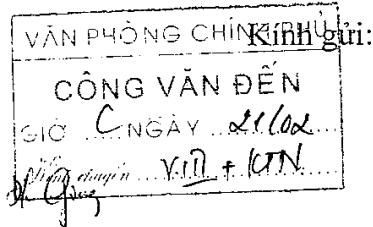 VĂN PHÒNG CHÍNH PHỦ
Kính gửi:
CÔNG VĂN ĐẾN
GIỜ C NGÀY 21/02
chuyển VIII + KTN